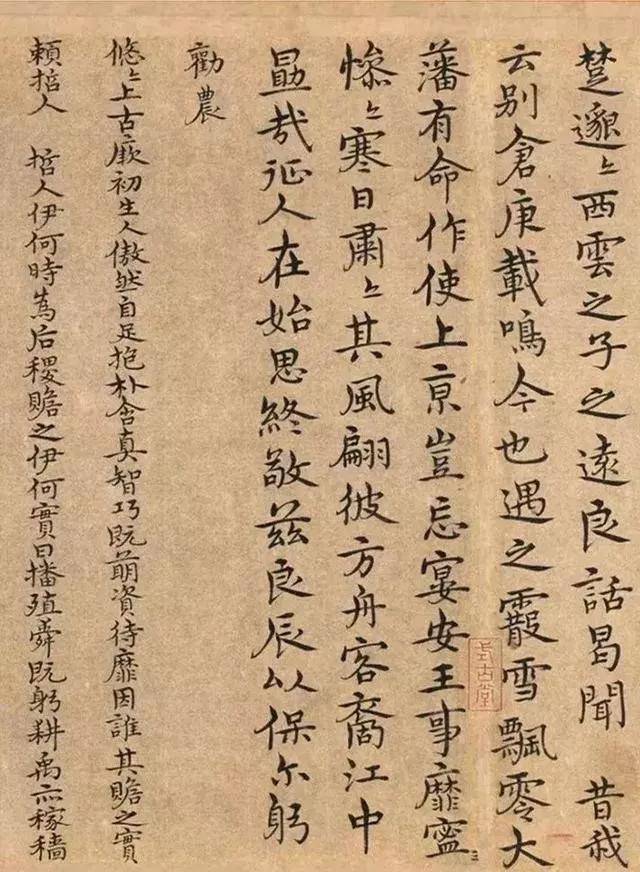 楚邈〻西雲之子之遠良話曷聞 昔我
云别倉庚載鳴今也遇之霰雪飄零大
藩有命作使上亰豈忘宴安王事靡寍
慘〻寒日肅〻其風翩彼方舟客裔江中
勗哉征人在始思終敬兹良辰以保尔躬
勸農
悠〻上古厥初生人傲然自足抱朴含真智巧既萌資待靡因誰其贍之實
頼哲人 哲人伊何時為后稷贍之伊何實曰播殖舜既躬耕禹亦稼穡
式古堂